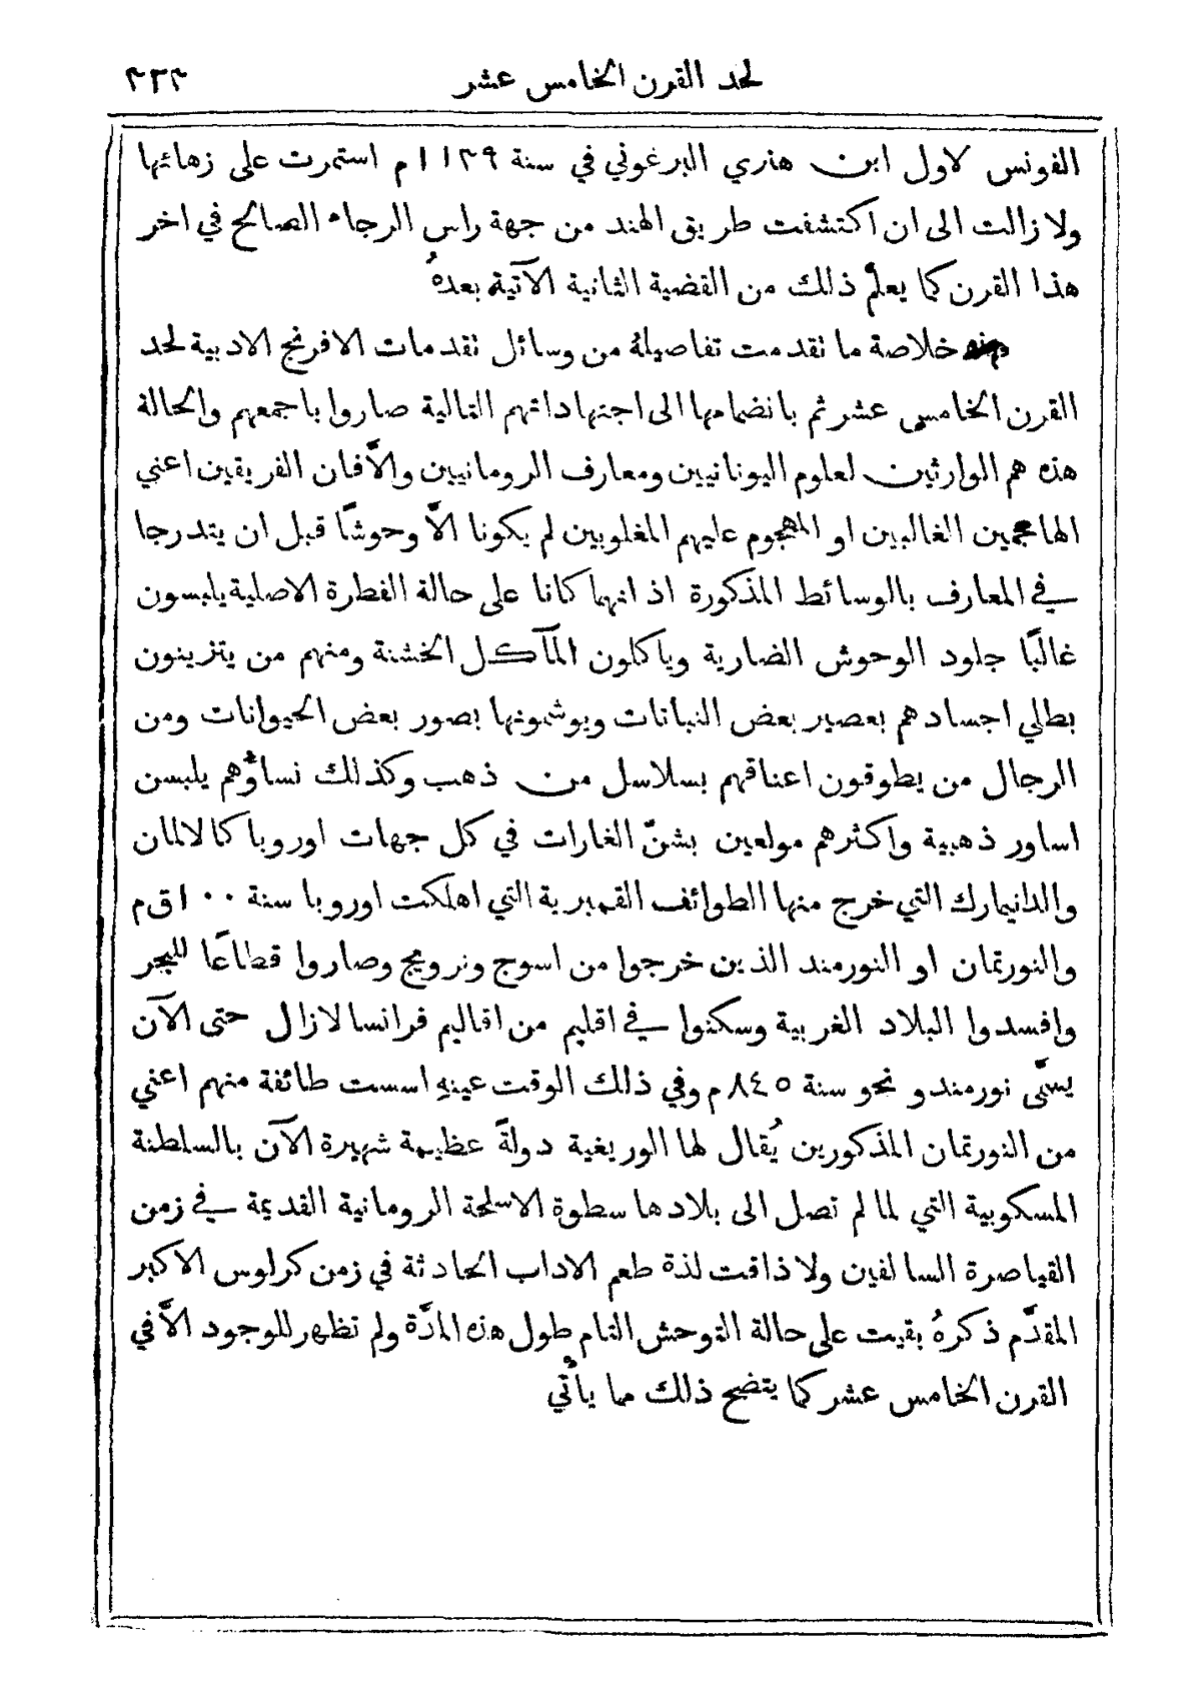 لحد القرن الخامس عشر ٣٢٣
الفونس لاول ابن هنري البرغوني في سنة ١١٣٩م استمرت على زهائها
ولا زالت الى ان اكتشفت طريق الهند من جهة راس الرجاء الصالح في اخر
هذا القرن كما يعلم ذلك من القضية الثانية الآتية بعدهُ
خلاصة ما تقدمت تفاصيلهُ من وسائل تقدمات الافرنج الادبية لحد
القرن الخامس عشر ثم بانضمامها الى اجتهاداتهم التالية صاروا باجمعهم والحالة
هذه هم الوارثين لعلوم اليونانيين ومعارف الرومانيين والَّا فان الفريقين اعني
الهاجمين الغالبين او المهجوم عليهم المغلوبين لم يكونا الَّا وحوشًا قبل ان يتدرجا
في المعارف بالوسائط المذكورة اذ انهما كانا على حالة الفطرة الاصلية يلبسون
غالبًا جلود الوحوش الضارية وياكلون المآكل الخشنة ومنهم من يتزينون
بطلي اجسادهم بعصير بعض النباتات ويوشمونها بصور بعض الحيوانات ومن
الرجال من يطوقون اعناقهم بسلاسل من ذهب وكذلك نساؤُهم يلبسن
اساور ذهبية واكثرهم مولعين بشنّ الغارات في كل جهات اوروبا كالالمان
والدانيمارك التي خرج منها الطوائف القمبرية التي اهلكت اوروبا سنة ١٠٠ق م
والنورتمان او النورمند الذين خرجوا من اسوج ونرويج وصاروا قطاعًا للبحر
وافسدوا البلاد الغربية وسكنوا في اقليم من اقاليم فرانسا لازال حتى الآن
يسمَّى نورمندو نحو سنة ٨٤٥م وفي ذلك الوقت عينهِ اسست طائفة منهم اعني
من النورتمان المذكورين يُقال لها الوريغية دولةً عظيمة شهيرة الآن بالسلطنة
المسكوبية التي لما لم تصل الى بلادها سطوة الاسلحة الرومانية القديمة في زمن
القياصرة السالفين ولا ذاقت لذة طعم الاداب الحادثة في زمن كرلوس الاكبر
المقدَّم ذكرهُ بقيت على حالة التوحش التام طول هذه المدَّة ولم تظهر للوجود الَّا في
القرن الخامس عشر كما يتضح ذلك مما يأتي